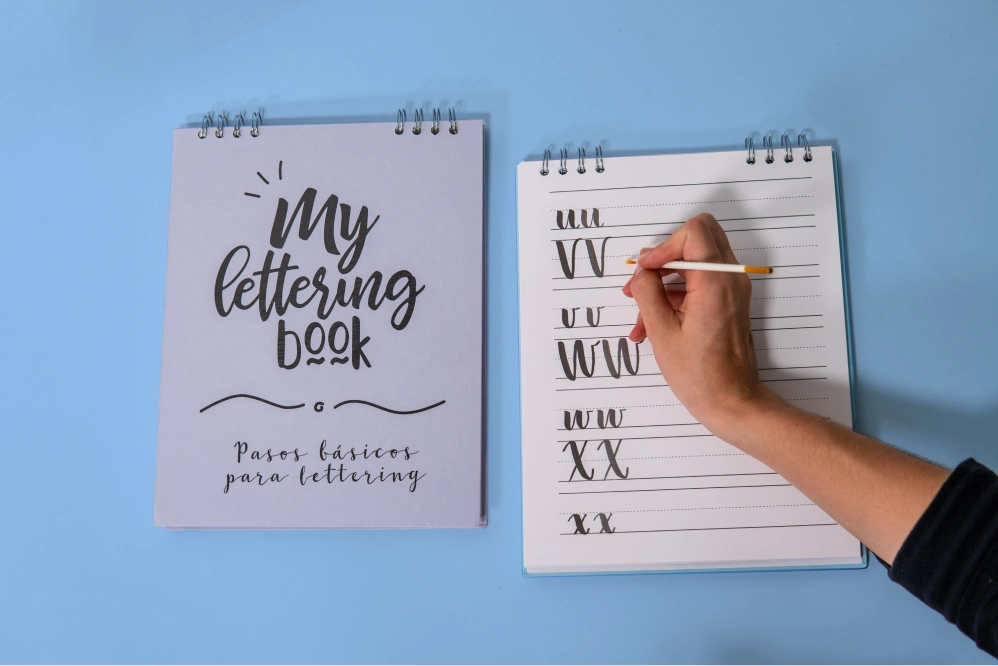 My
lettering
book
Pasos básicos
para lettering
uu
VV
vv
WW
ww
XX
xx